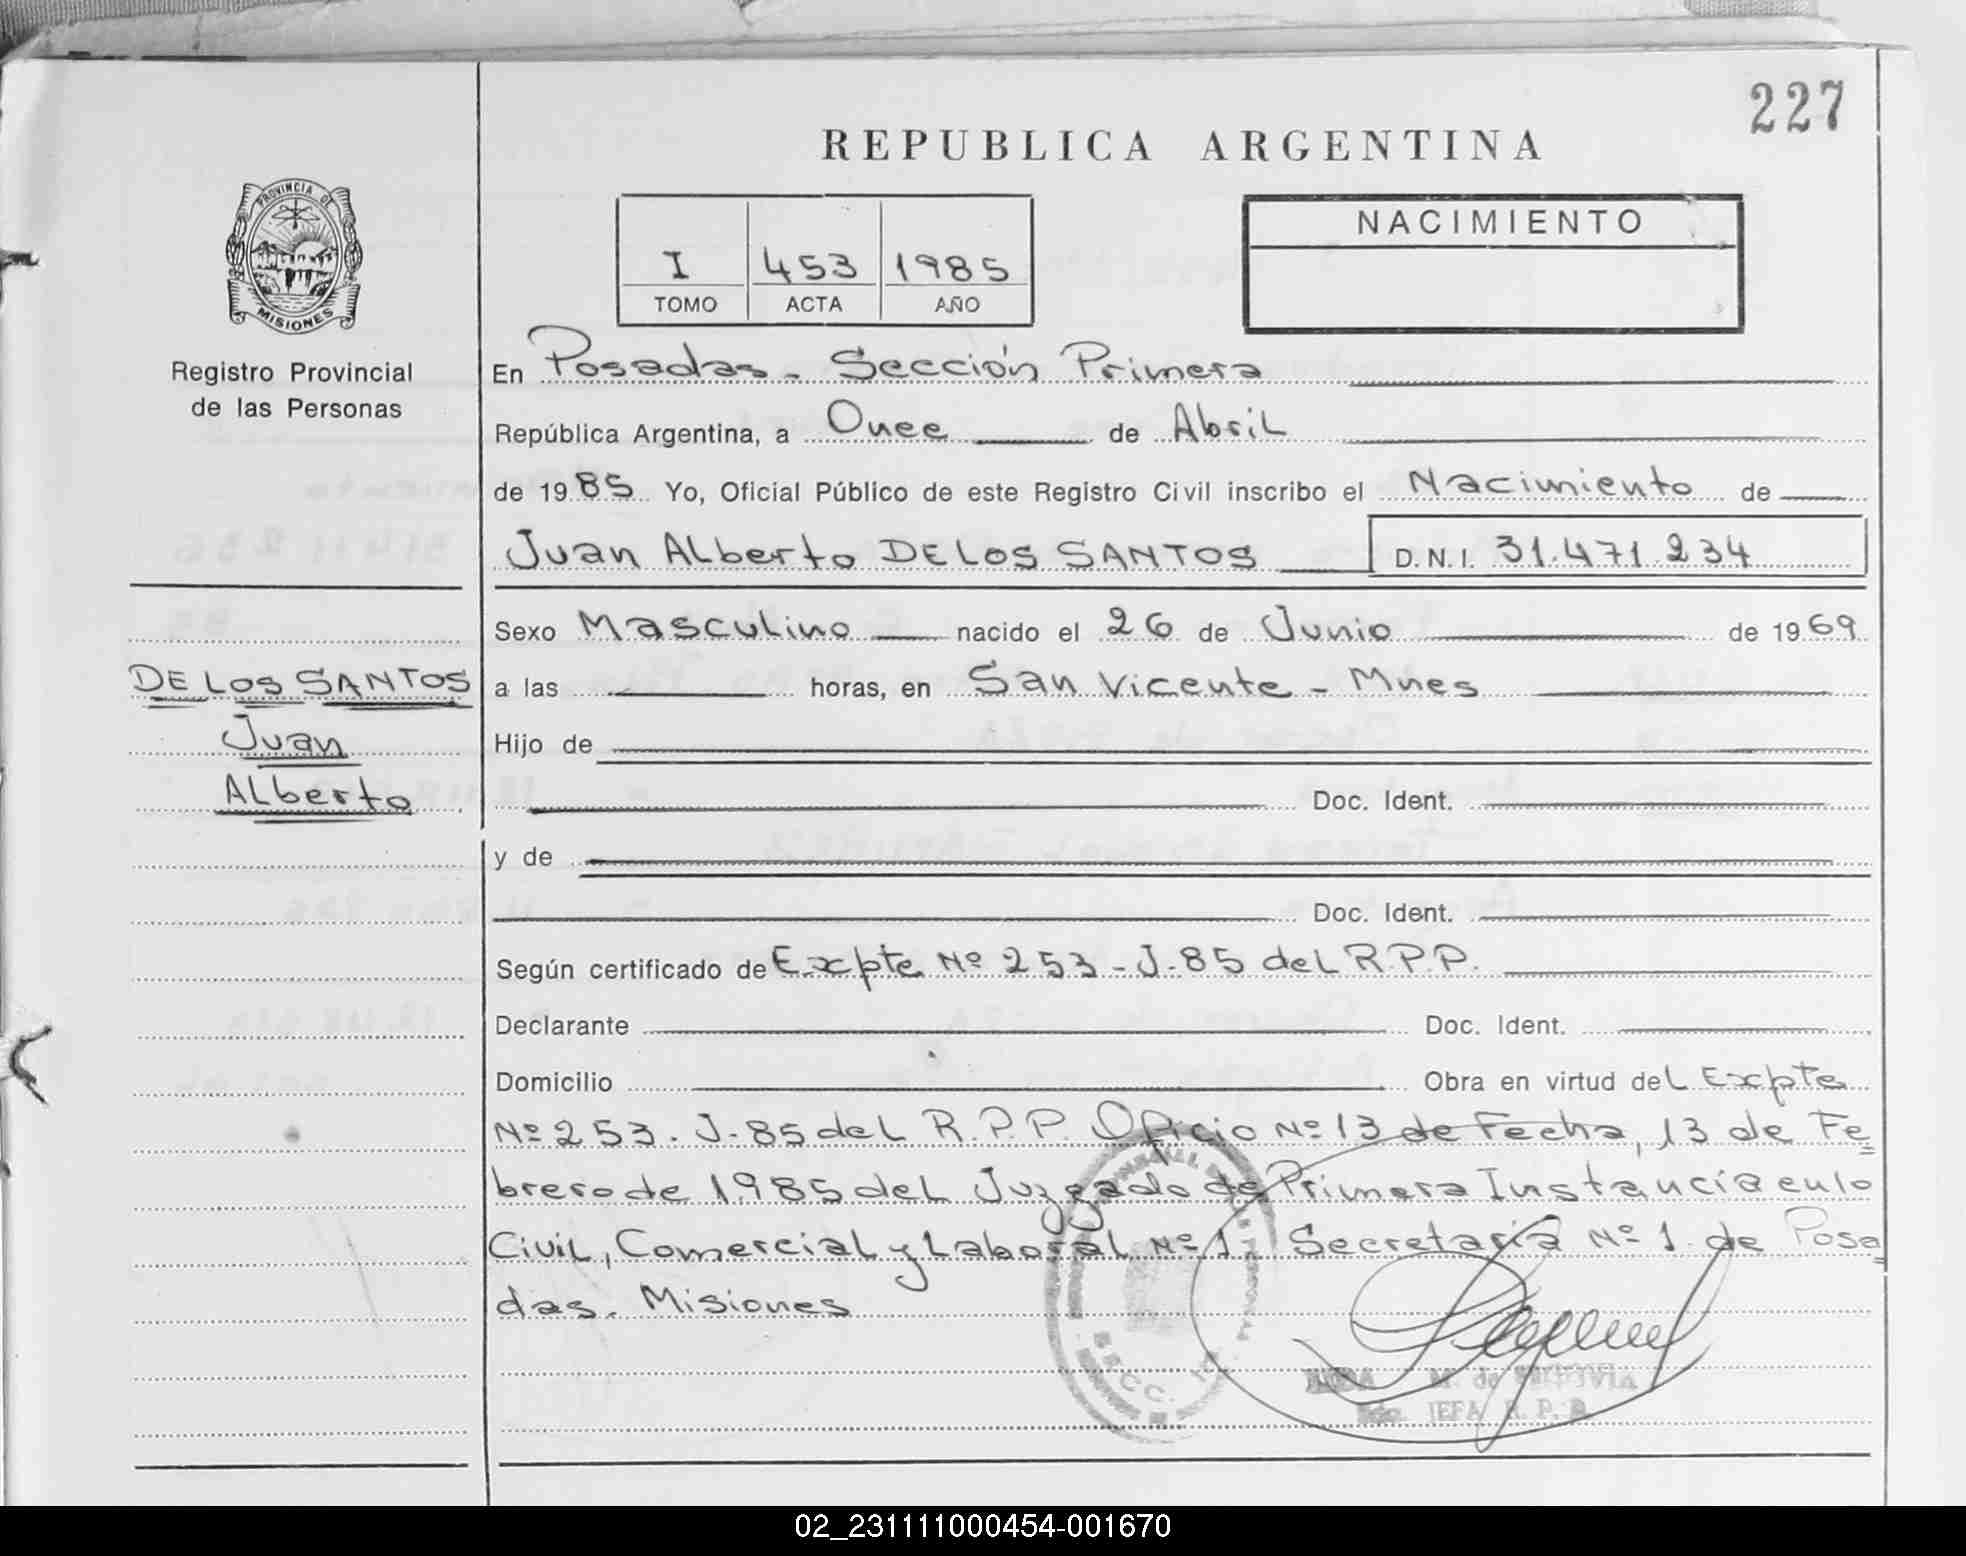 227
REPUBLICA ARGENTINA
PROVINCIA DE
MISIONES
Registro Provincial
de las Personas
I 453 1985
TOMO ACTA AÑO
NACIMIENTO
En Posadas - Sección Primera
República Argentina, a Once de Abril
de 1985 Yo, Oficial Público de este Registro Civil inscribo el Nacimiento de
Juan Alberto DE LOS SANTOS D.N.I. 31.471.234
Sexo Masculino nacido el 26 de Junio de 1969
DE LOS SANTOS
Juan
Alberto
a las horas, en San Vicente - Mnes
Hijo de
Doc. Ident.
y de
Doc. Ident.
Según certificado de Expte Nº 253 - J - 85 del R.P.P.
Declarante Doc. Ident.
Domicilio Obra en virtud del Expte
Nº 253. J - 85 del R.P.P. Oficio Nº 13 de Fecha, 13 de Fe
brero de 1985 del Juzgado de Primera Instancia en lo
Civil, Comercial y Laboral Nº 1 Secretaría Nº 1 de Posa
das. Misiones
M. de
JEFA R. P. P.
SECC. 1ra
02_231111000454-001670